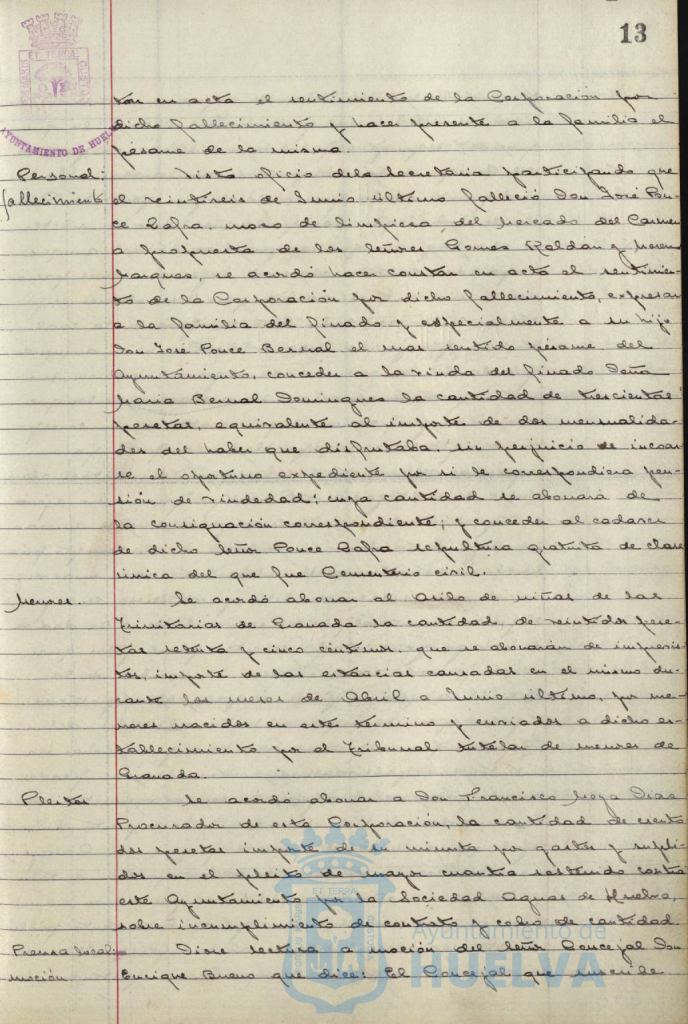 13
AYUNTAMIENTO DE HUEL
tar en acta el sentimiento de la Corporación por
dicho fallecimiento y hacer presente a la familia el
pésame de la misma.
Personal:
fallecimiento
Visto oficio dela Secretaria participando que
el veintiseis de Junio último falleció Don José Pon-
ce Lafra, mozo de limpieza, del Mercado del Carmen
a propuesta de los señores Gomez Roldán y Moreno
Marquez, se acordó hacer constar en acta el sentimien-
to de la Corporación por dicho fallecimiento, expresar
a la familia del finado y especialmente a su hijo
Don José Ponce Bernal el mas sentido pésame del
Ayuntamiento, conceder a la viuda del finado Doña
Maria Bernal Dominguez la cantidad de trescientas
pesetas, equivalente al importe de dos mensualida-
des del haber que disfrutaba, sin perjuicio de incoar-
se el oportuno expediente por si le correspondiera pen-
sión de viudedad; cuya cantidad se abonará de
la consignación correspondiente; y conceder al cadaver
de dicho señor Ponce Lafra sepultura gratuita de clase
única del que fue Cementerio civil.
Menores.
Se acordó abonar al Asilo de niñas de las
Trinitarias de Granada la cantidad de veintidos pese-
tas setenta y cinco céntimos, que se abonarán de imprevis-
tos, importe de las estancias causadas en el mismo du-
rante los meses de Abril a Junio último, por me-
nores nacidos en este término y enviados a dicho es-
tablecimiento por el Tribunal tutelar de menores de
Granada.
Pleitos
Se acordó abonar a Don Francisco Moya Diaz
Procurador de esta Corporación, la cantidad de ciento
dos pesetas importe de su minuta por gastos y supli-
dos en el pleito de mayor cuantia sostenido contra
este Ayuntamiento por la Sociedad Aguas de Huelva,
sobre incumplimiento de contrato y cobro de cantidad.
Prensa local:
moción.
Diose lectura a moción del señor Concejal Don
Enrique Bueno que dice: El Concejal que suscribe
Ayuntamiento de
HUELVA